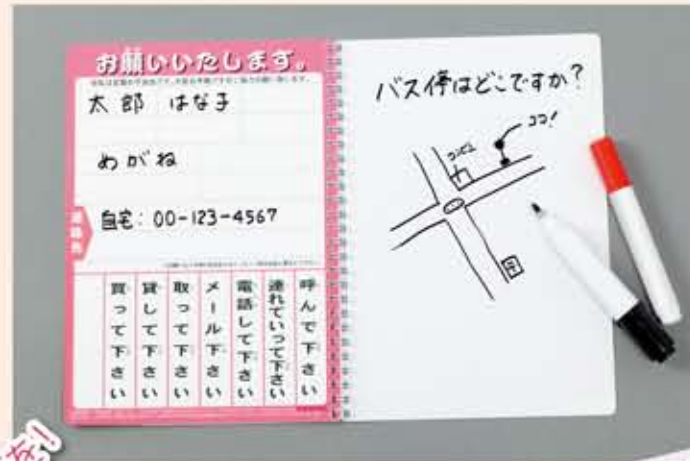 お願いいたします。
太郎 はな子
めがね
自宅：00-123-4567
連絡先
呼んで下さい
連れていって下さい
電話して下さい
メール下さい
取って下さい
貸して下さい
買って下さい
バス停はどこですか？
コンビニ
ココ！